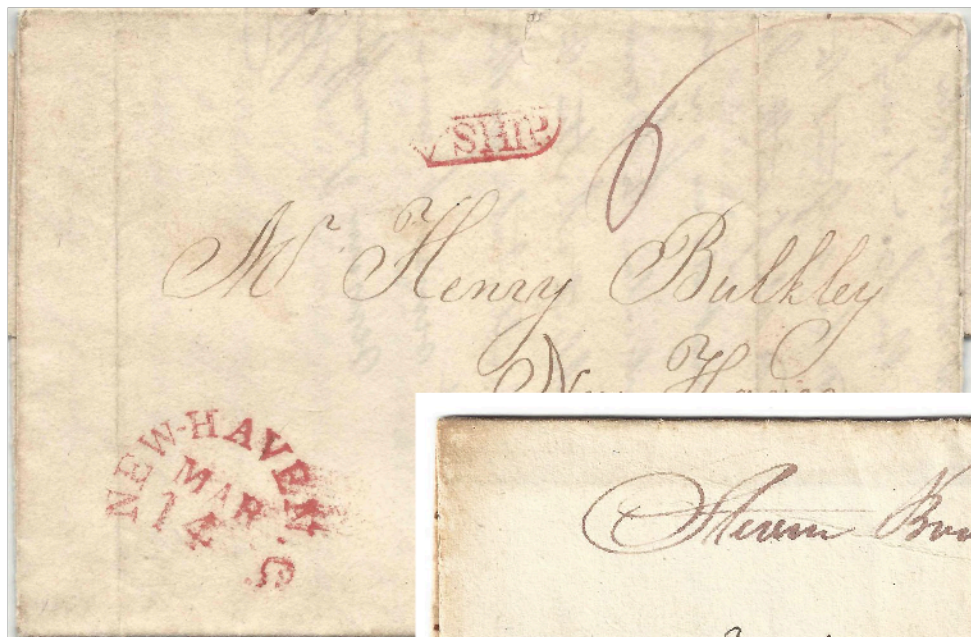 SHIP
6
Mr Henry Bulkley
New Haven
NEW-HAVEN C.
MAR
14
Steam